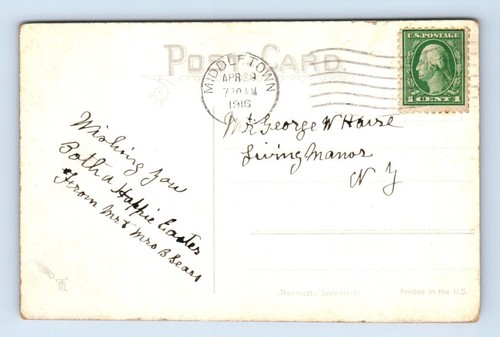 POST CARD.
MIDDLETOWN
APR 28
7 30 AM
1916
U.S. POSTAGE
1 CENT 1
Mr George W
Living Manor
N Y
Wishing you
Both a Happie Easter
From Mr & Mrs B Sears
Printed in the U.S.